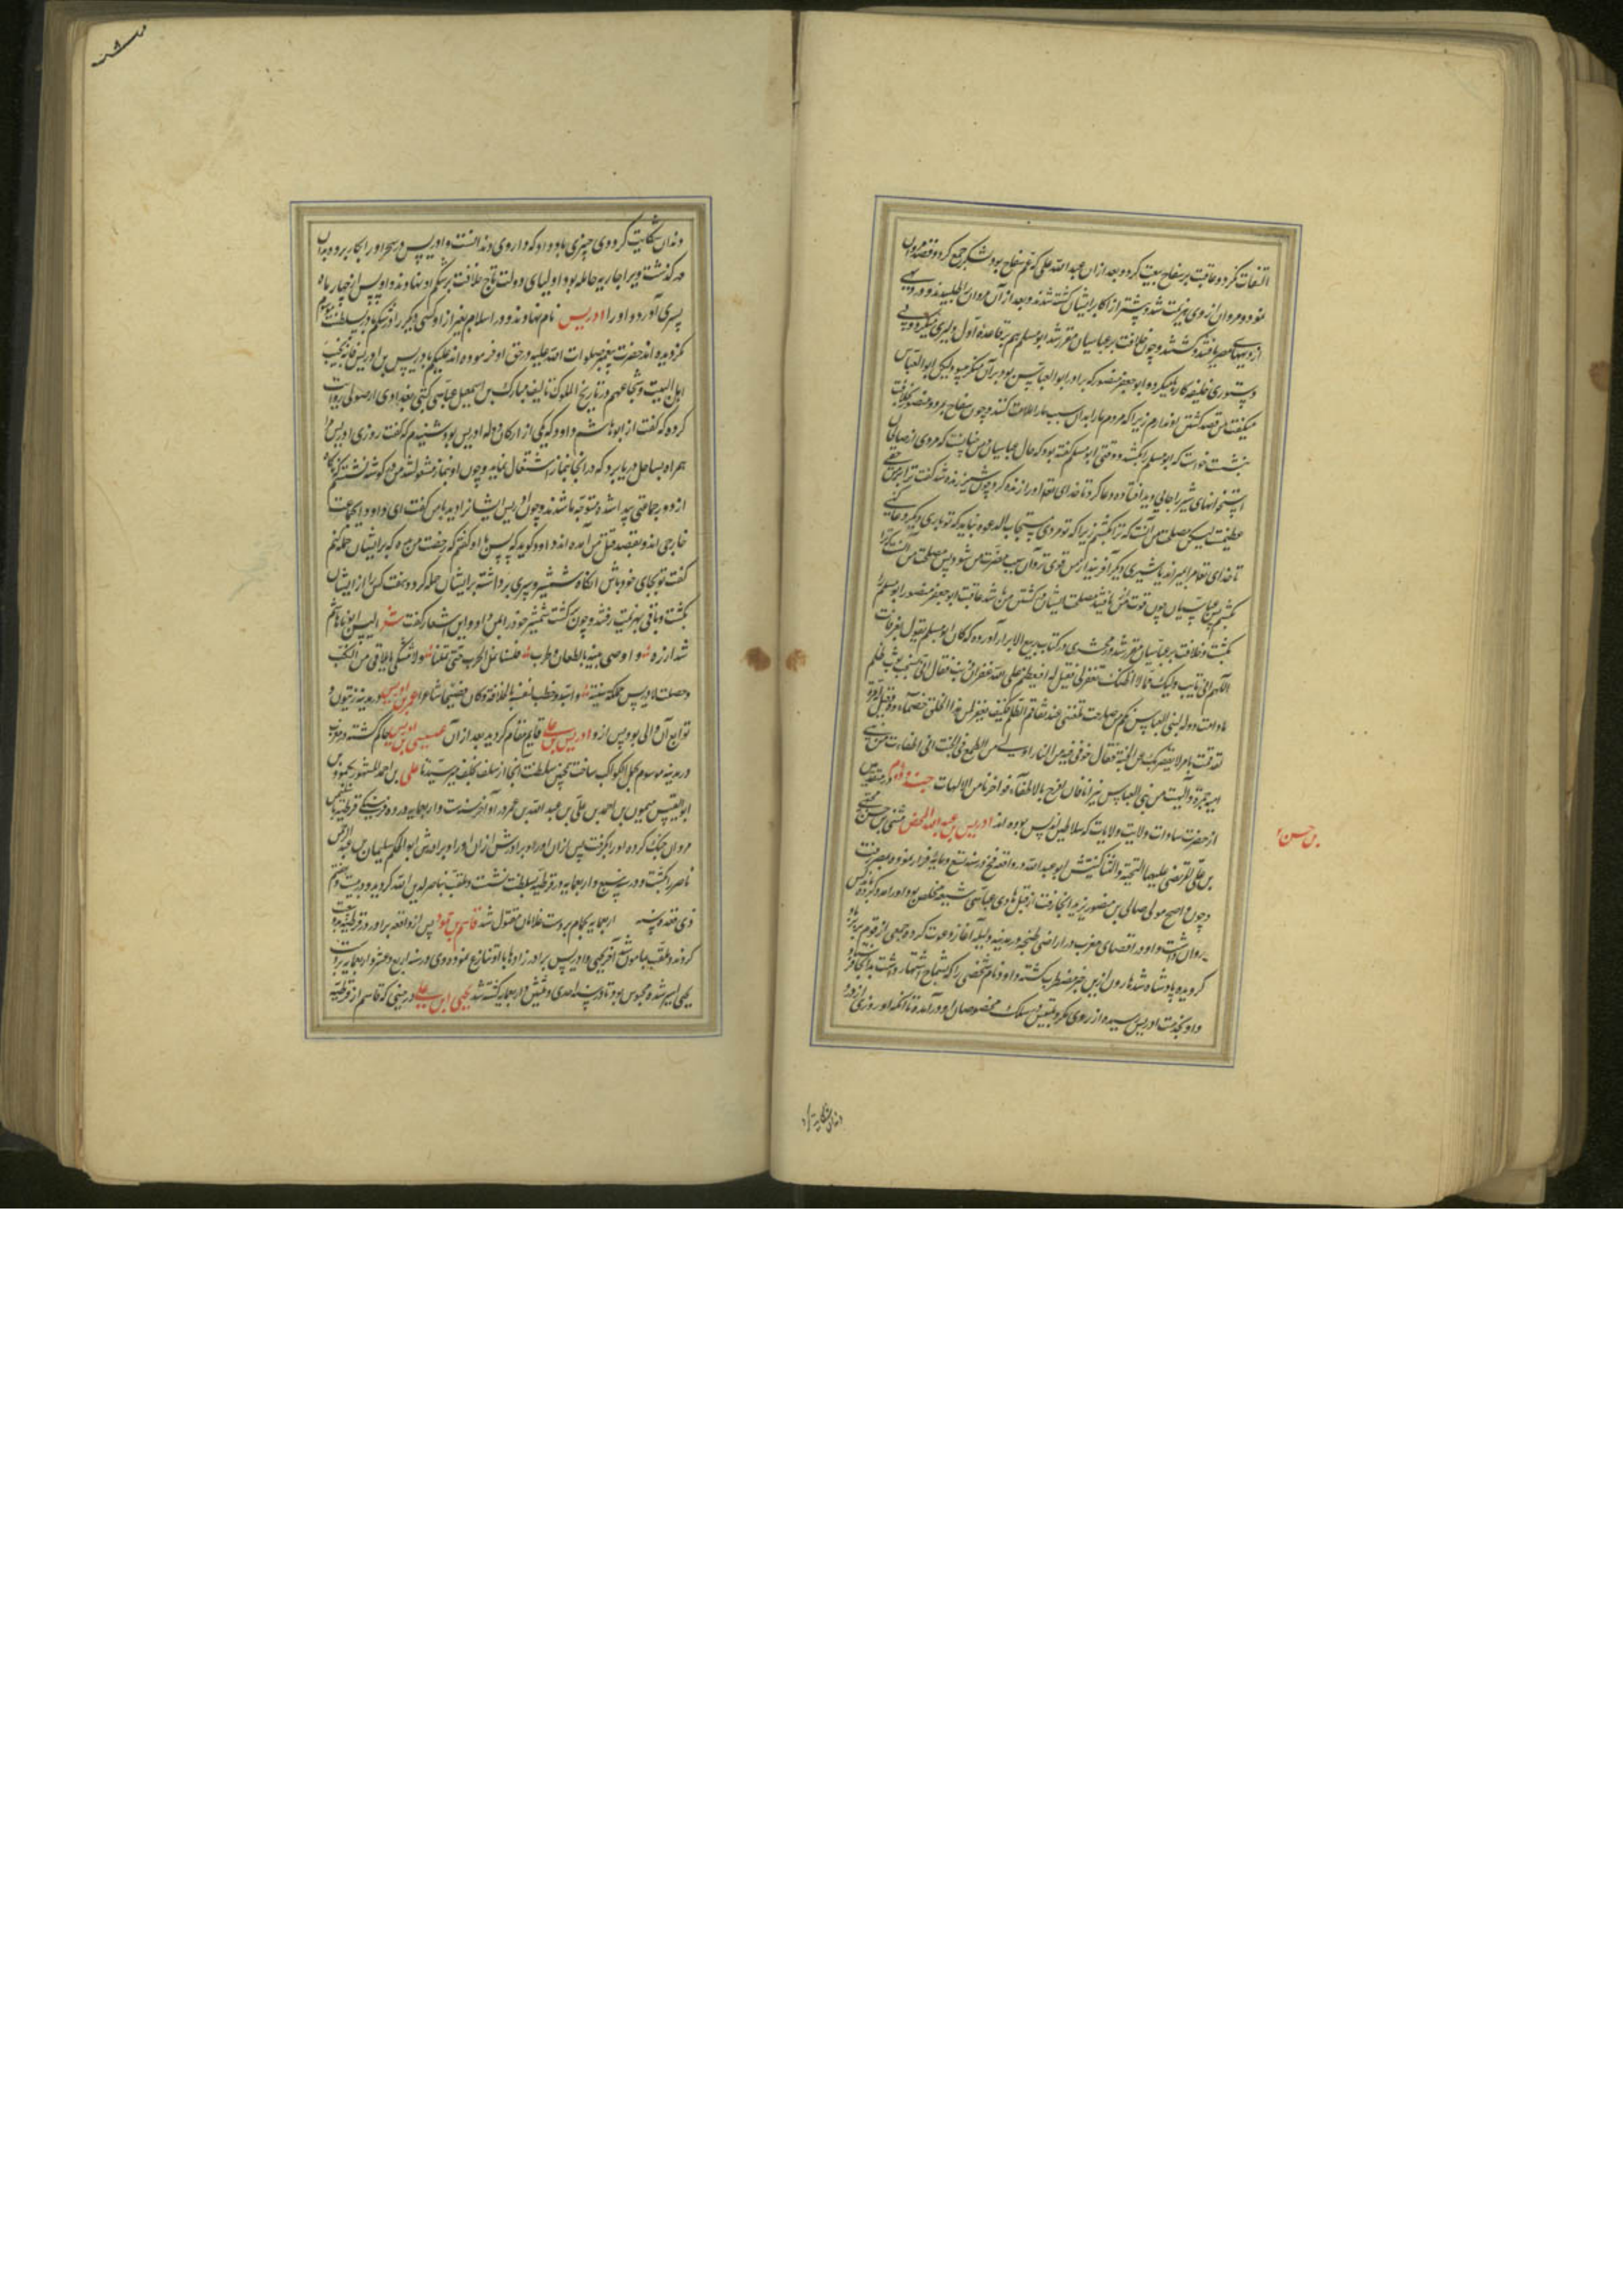 التفات نکرد و عاقبت بر سفاح بیعت کرد و بعد از ان عبد الله علی که عم سفاح بود لشکر جمع کرد و قصد مروان
نمود و مروان از وی هزیمت شد و بیشتر از اکابر ایشان کشته شدند و بعد از آن مروان را طلبیدند و در دیهی
از دیههای مصر یافتند و کشتند و چون خلافت بر عباسیان مقرر شد ابو مسلم هم بر قاعده اول دلیری میکرد و بی
دستوری خلیفه کارها میکرد و ابو جعفر منصور که برادر ابو العباس بود بر آن منکر میبود لیکن ابو العباس
میگفت من قصد کشتن او ندارم زیرا که مردم ما را بدان سبب ملامت کنند و چون سفاح بمرد و منصور بخلافت
بنشست خواست که ابو مسلم را بکشد و وقتی ابو مسلم گفته بود که حال عباسیان و من چنانست که مردی از صالحان
استخوانهای شیر را جایی دید افتاده دعا کرد تا خدای تعالی او را زنده کرد چون شیر زنده شد گفت ترا بر من حقی
عظیمست لیکن مصلحت من آنست که ترا بکشم زیرا که تو مردی مستجاب الدعوه نباید که تو باری دیگر دعا کنی
تا خدای تعالی مرا بمیراند یا شیری دیگر آفریند از من قوی تر و آن سبب مضرت من شود پس مصلحت من آنست که ترا
بکشم پس عباسیان چون قوت یافتند مصلحت ایشان در کشتن من باشد عاقبت ابو جعفر منصور ابو مسلم را
بکشت و خلافت بر عباسیان مقرر شد زمخشری در کتاب ربیع الابرار آورده که کان ابو مسلم یقول بعرفات
اللهم انی تایب الیک مما لا اظنک تغفر لی فقیل له افیعظم علی الله غفران ذنب فقال انی نسجت ثوب ظلم
ما دامت دولة لبنی العباس فکم من صارخة تلعننی عند تفاقم الظلم فکیف یغفر لمن هذا الخلق خصماؤه و قیل له مرة
لقد قمت بامر لا یقصر بک عن الجنة فقال خوفی فیه من النار اولی من الطمع فی الجنة انی اطفات من بنی
امیة جمرة و الهبت من بنی العباس نیرانا فان افرح بالاطفاء فوا حزنا من الالهاب جند دوم در مقدمین
از حضرت سادات ولایت ولایات که سلاطین اندلس بوده اند ادریس بن عبد الله المحض مثنی بن حسن مجتبی
بن حسن
بن علی المرتضی علیهما التحیة و الثنا کنیتش ابو عبد الله در واقعه فخ در سنه تسع و مایة فرار نمود و بمصر رفت
و چون واضح مولی صالح بن منصور برید انجا رفت از قبل هادی عباسی شیعه مخلص بود او را مدد کرده با دکس
روان داشت و او در اقصای مغرب در اراضی طنجه در مدینه ولیله آغاز دعوت کرده جمعی از قوم بربر با او
گرویده پادشاه شد هارون ازین خبر مضطرب گشته داود نام شخصی را که بشماخ اشتهار داشت بدانجا فرستاد
و او بخدمت ادریس رسیده از روی مکر و تلبیس در سلک مخصوصان او در آمده تا آنکه او روزی از درد
دندان شکایت کرد
دندان شکایت کرد وی چیزی باو داد که داروی دندانست و ادریس در سحر او را بکار برد و بدان
در گذشت و یرا جاریه حامله بود اولیای دولت تاج خلافت بر شکم او نهادند و او پس از چهار ماه
پسری آورد و او را ادریس نام نهادند و در اسلام بغیر از او کسی دیگر را در شکم مادر بسلطنت موسوم
نگردیده اند حضرت پیغمبر صلوات الله علیه در حق او فرموده اند علیکم بادریس بن ادریس فانه نجیب
اهل البیت و شجاعهم در تاریخ الملوک تالیف مبارک بن اسمعیل عباسی کتبی بغدادی از صولی روایت
کرده که گفت از ابو هاشم داود که یکی از ارکان دوله ادریس بود شنیدم که گفت روزی ادریس مرا
همراه بساحل دریا برد که در انجا بنماز اشتغال نماید و چون او بنماز مشغول شد من در گوشه نشستم که ناگاه
از دور جماعتی پیدا شده متوجه ما شدند و چون ادریس ایشانرا دید با من گفت ای داود این جماعت
خارجی اند و بقصد قتل من آمده اند داود گوید که پس باو گفتم که رخصت من ده که بر ایشان حمله کنم
گفت تو بجای خود باش انگاه شمشیر و سپری برداشته بر ایشان حمله کرد و هفت کس را از ایشان
بکشت و باقی بهزیمت رفتند و چون گشت شمشیر خود را بمن داد و این اشعار گفت شعر الیس ابونا هاشم
شد ازره و اوصی بنیه بالطعان و ضرب فلسنا نمل الحرب حتی تملنا و لا نشتکی مما یلاقی من النکب
و حصلت لادریس مملکة سنیة و استبد و خطب لنفسه بالخلافة و کان فصیحا شاعرا عمر بن ادریس در مدینه زیتون و
توابع آن والی بود پس ازو ادریس بن علی قایم مقام گردید بعد از آن عیسی بن ادریس حاکم گشته و مغرب
در مدینه موسوم بجبل الکواکب ساخت همچنین سلطنت انجا از سلف بخلف میرسید تا علی بن احمد المشهور بحمود بن
ابو العیش میمون بن احمد بن علی بن عبد الله بن عمر در اواخر سنه ست و اربعمایه در ده فرسنگی قرطبه با سلیمان
مروان جنگ کرده او را بگرفت پس از ان او را و برادرش از ان او را و برادرش ابو الحکم سلیمان بن عبد الرحمن
ناصر را کشت و در سنه سبع و اربعمایه در قرطبه بسلطنت نشست و ملقب بناصر لدین الله گردید و در بیست و هفتم
ذی قعده سنه اربعمایه بحمام بر دست غلامان مقتول شد قاسم بن حمود پس از واقعه برادر در قرطبه بیعت
کردند و ملقب بمامون شد آخر یحیی و ادریس برادر زادها با او تنازع نموده وی در سنه اربع و عشر و اربعمایه بر دست
یحیی اسیر شده محبوس بود تا در سنه احدی و ثلثین و اربعمایه کشته شد یحیی ابن علی در حینی که قاسم از قرطبه